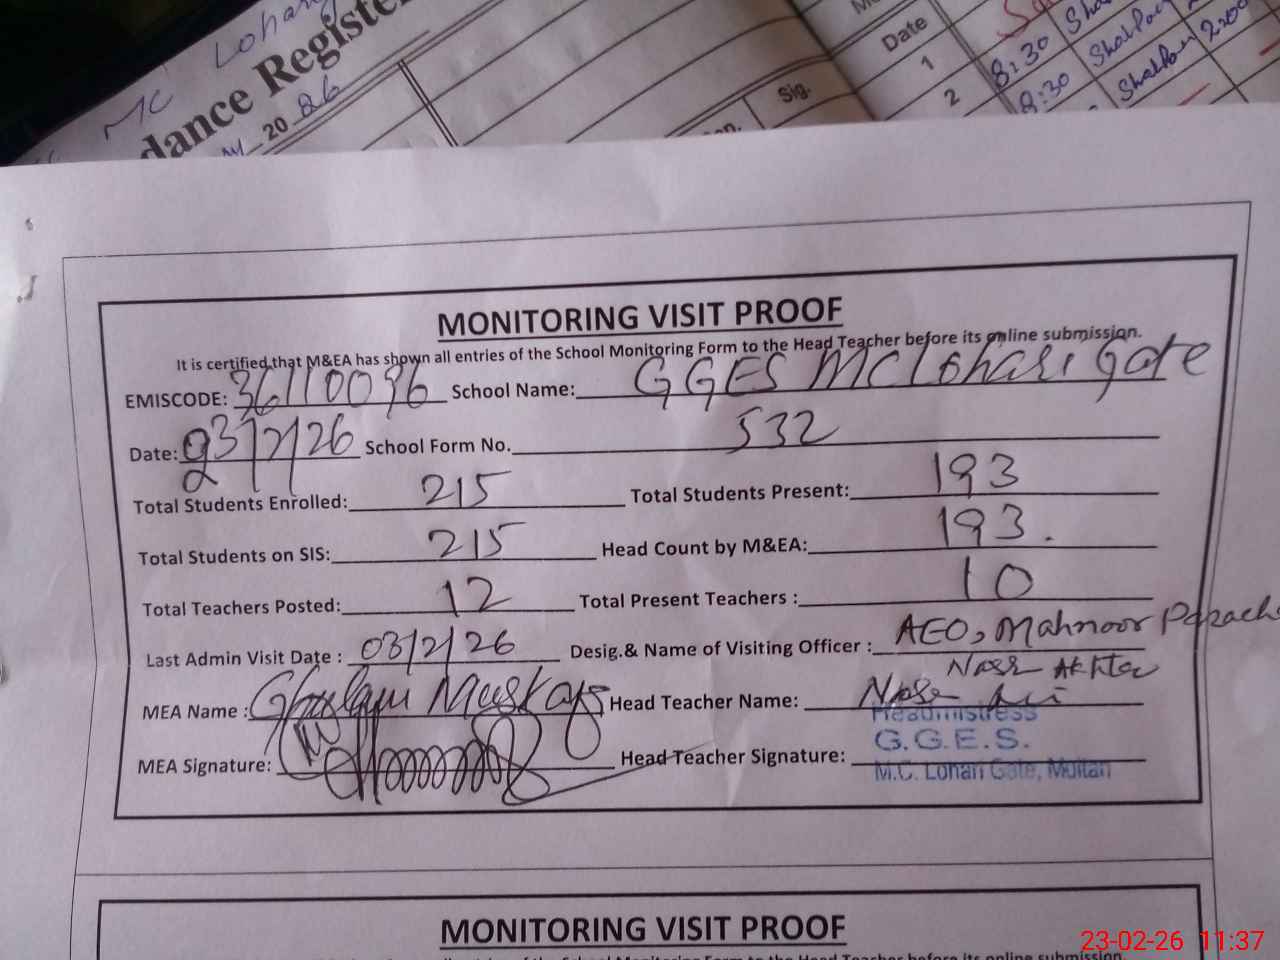 MC Lohari
dance Register
20 26
Sig.
Date
1 8:30
2 8:30
MONITORING VISIT PROOF
It is certified that M&EA has shown all entries of the School Monitoring Form to the Head Teacher before its online submission.
EMISCODE: 36110096 School Name: GGES MC Lohari Gate
Date: 23/2/26 School Form No. 532
Total Students Enrolled: 215 Total Students Present: 193
Total Students on SIS: 215 Head Count by M&EA: 193.
Total Teachers Posted: 12 Total Present Teachers : 10
Last Admin Visit Date : 03/2/26 Desig.& Name of Visiting Officer : AEO, Mahnoor
Akhter
MEA Name : Ghulam Head Teacher Name:
Headmistress
MEA Signature: Head Teacher Signature: G.G.E.S.
M.C. Lohari Gate, Multan
MONITORING VISIT PROOF
of the School Monitoring Form to the Head Teacher before its online submission.
23-02-26 11:37